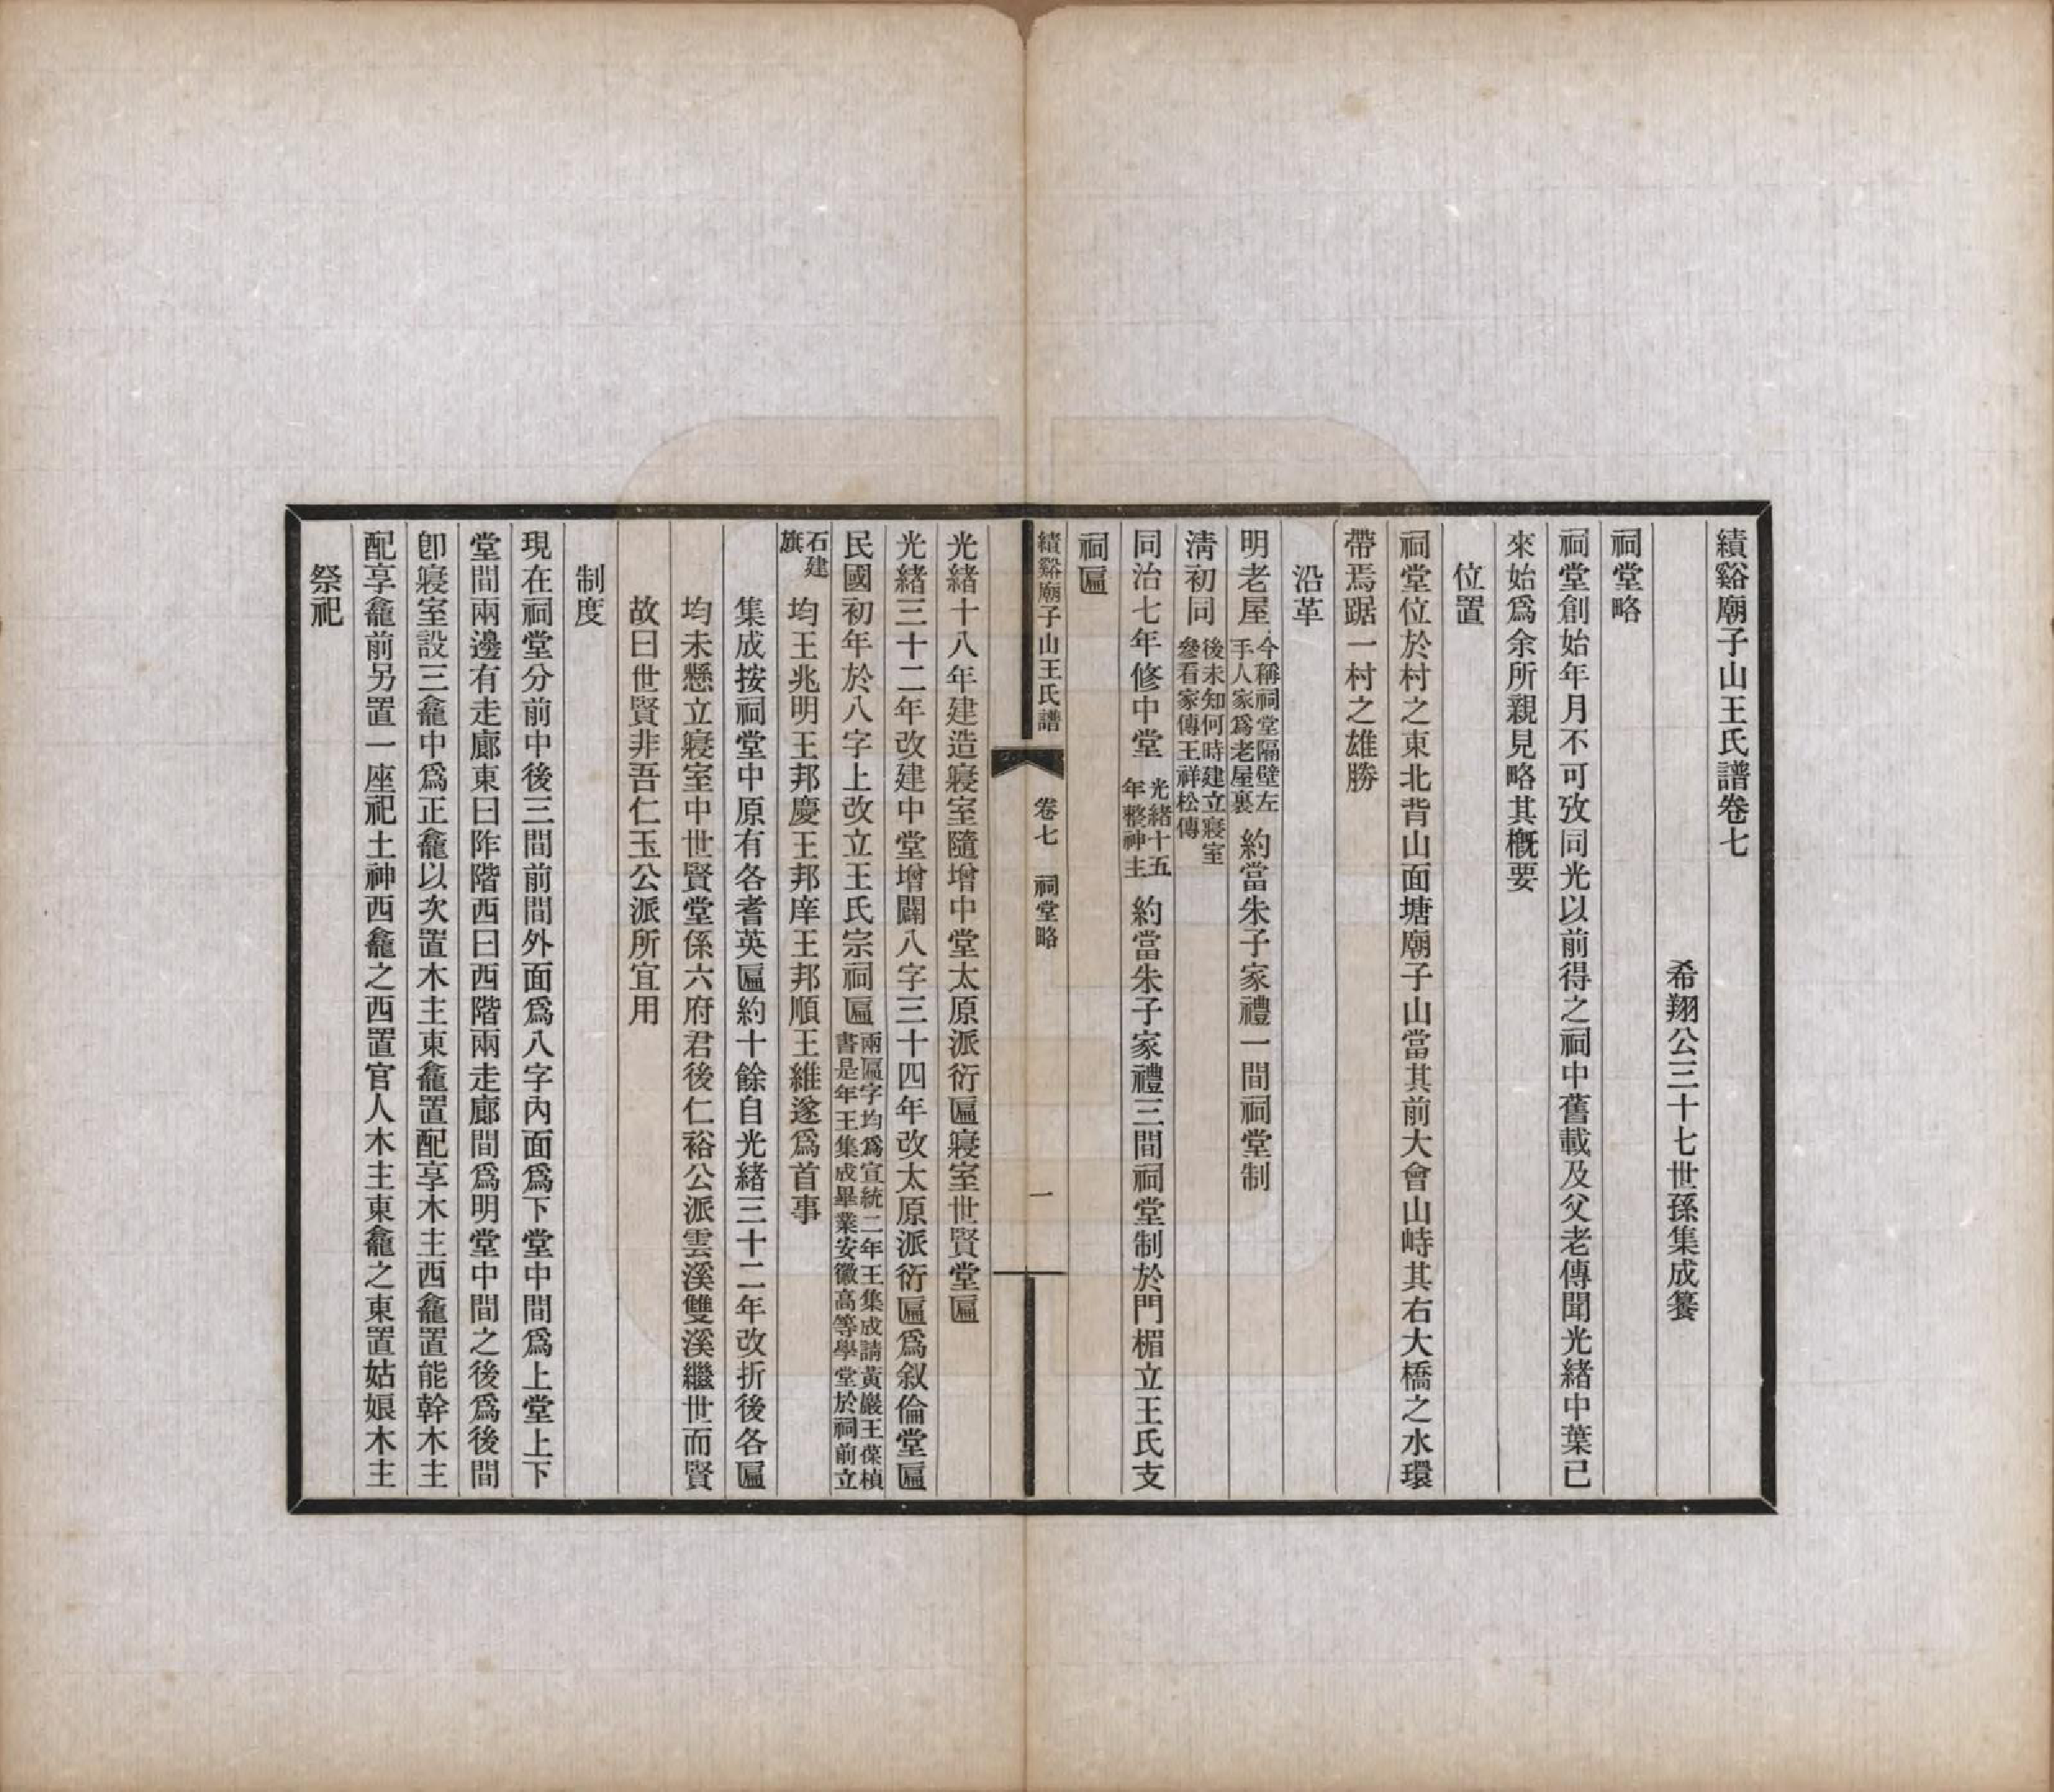 績谿廟子山王氏譜卷七
希翔公三十七世孫集成纂
祠堂略
祠堂創始年月不可攷同光以前得之祠中舊載及父老傳聞光緒中葉已
來始爲余所親見略其概要
位置
祠堂位於村之東北背山面塘廟子山當其前大會山峙其右大橋之水環
帶焉踞一村之雄勝
沿革
明老屋今稱祠堂隔壁左手人家爲老屋裏約當朱子家禮一間祠堂制
淸初同後未知何時建立寢室參看家傳王祥松傳
同治七年修中堂光緒十五年整神主約當朱子家禮三間祠堂制於門楣立王氏支
祠匾
績谿廟子山王氏譜 卷七 祠堂略 一
光緒十八年建造寢室隨增中堂太原派衍匾寢室世賢堂匾
光緒三十二年改建中堂增闢八字三十四年改太原派衍匾爲叙倫堂匾
民國初年於八字上改立王氏宗祠匾兩匾字均爲宣統二年王集成請黃巖王葆楨書是年王集成畢業安徽高等學堂於祠前立
石建旗均王兆明王邦慶王邦庠王邦順王維遂爲首事
集成按祠堂中原有各耆英匾約十餘自光緒三十二年改折後各匾
均未懸立寢室中世賢堂係六府君後仁裕公派雲溪雙溪繼世而賢
故曰世賢非吾仁玉公派所宜用
制度
現在祠堂分前中後三間前間外面爲八字內面爲下堂中間爲上堂上下
堂間兩邊有走廊東曰阼階西曰西階兩走廊間爲明堂中間之後爲後間
卽寢室設三龕中爲正龕以次置木主東龕置配享木主西龕置能幹木主
配享龕前另置一座祀土神西龕之西置官人木主東龕之東置姑娘木主
祭祀